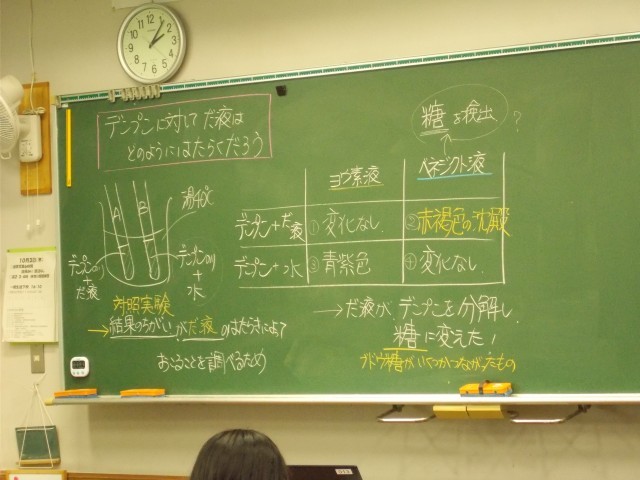 デンプンに対して だ液は
どのようにはたらくだろう
糖を検出
?
ヨウ素液
ベネジクト液
デンプン+だ液
①変化なし
②赤褐色の沈殿
デンプン+水
③青紫色
④変化なし
湯40℃
A
B
デンプンのり
+
だ液
デンプンのり
+
水
対照実験
→結果のちがいがだ液のはたらきによって
おこることを調べるため
→だ液が、デンプンを分解し、
糖に変えた!
ブドウ糖がいくつかつながったもの
12
1
2
3
4
5
6
7
8
9
10
11